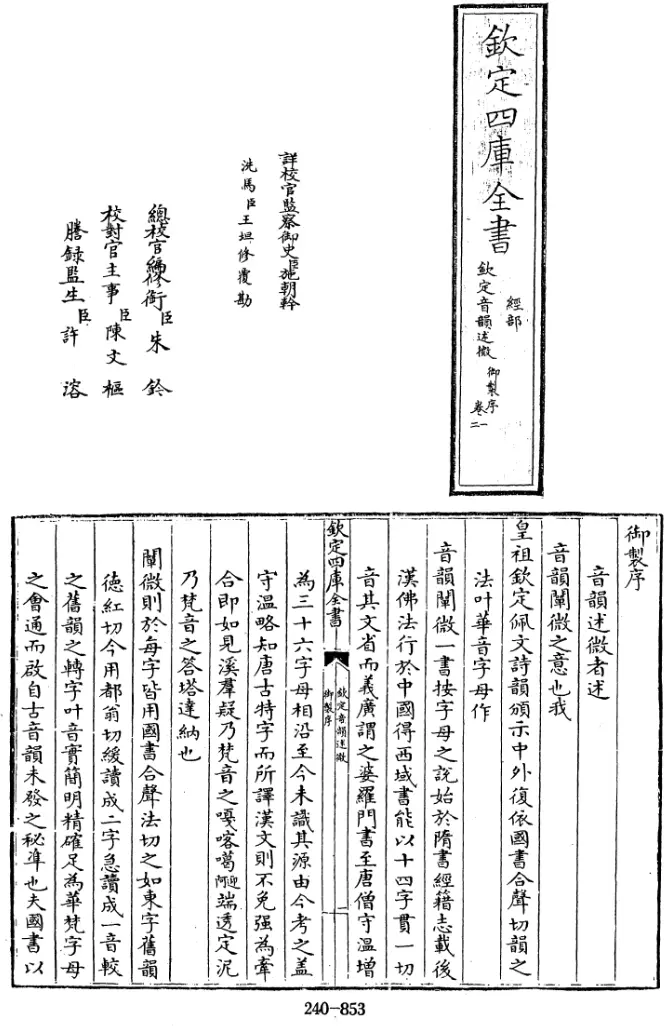 欽定四庫全書
經部
欽定音韻述微
御製序
卷一
二
詳校官監察御史臣施朝幹
洗馬臣王坦修覆勘
總校官編修銜臣朱鈐
校對官主事臣陳文樞
謄録監生臣許溶
御製序
音韻述微者述
音韻闡微之意也我
皇祖欽定佩文詩韻頒示中外復依國書合聲切韻之
法叶華音字母作
音韻闡微一書按字母之說始於隋書經籍志載後
漢佛法行於中國得西域書能以十四字貫一切
音其文省而義廣謂之婆羅門書至唐僧守温增
欽定四庫全書
欽定音韻述微
御製序
一
為三十六字母相沿至今未識其源由今考之盖
守温略知唐古特字而所譯漢文則不免强為牽
合即如見溪羣疑乃梵音之嘎喀噶迎阿端透定泥
乃梵音之答塔達納也
闡微則於每字皆用國書合聲法切之如東字舊韻
德紅切今用都翁切緩讀成二字急讀成一音較
之舊韻之轉字叶音實簡明精確足為華梵字母
之會通而啟自古音韻未發之秘凖也夫國書以
240-853